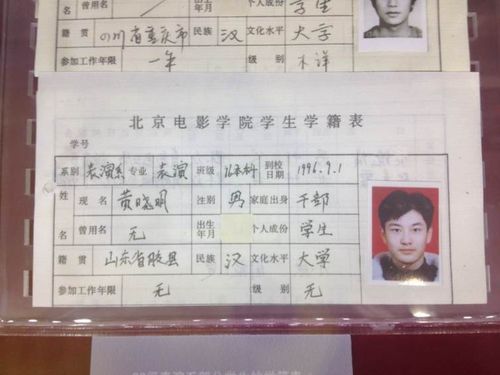 名 曾用名 出生年月 个人成份 学生
籍贯 四川省重庆市 民族 汉 文化水平 大学
参加工作年限 一年 级别 不详
北京电影学院学生学籍表
学号
系别 表演系 专业 表演 班级 96本科 到校日期 1996.9.1
姓 现名 黄晓明 性别 男 家庭出身 干部
名 曾用名 无 出生年月 个人成份 学生
籍贯 山东省胶县 民族 汉 文化水平 大学
参加工作年限 无 级别 无